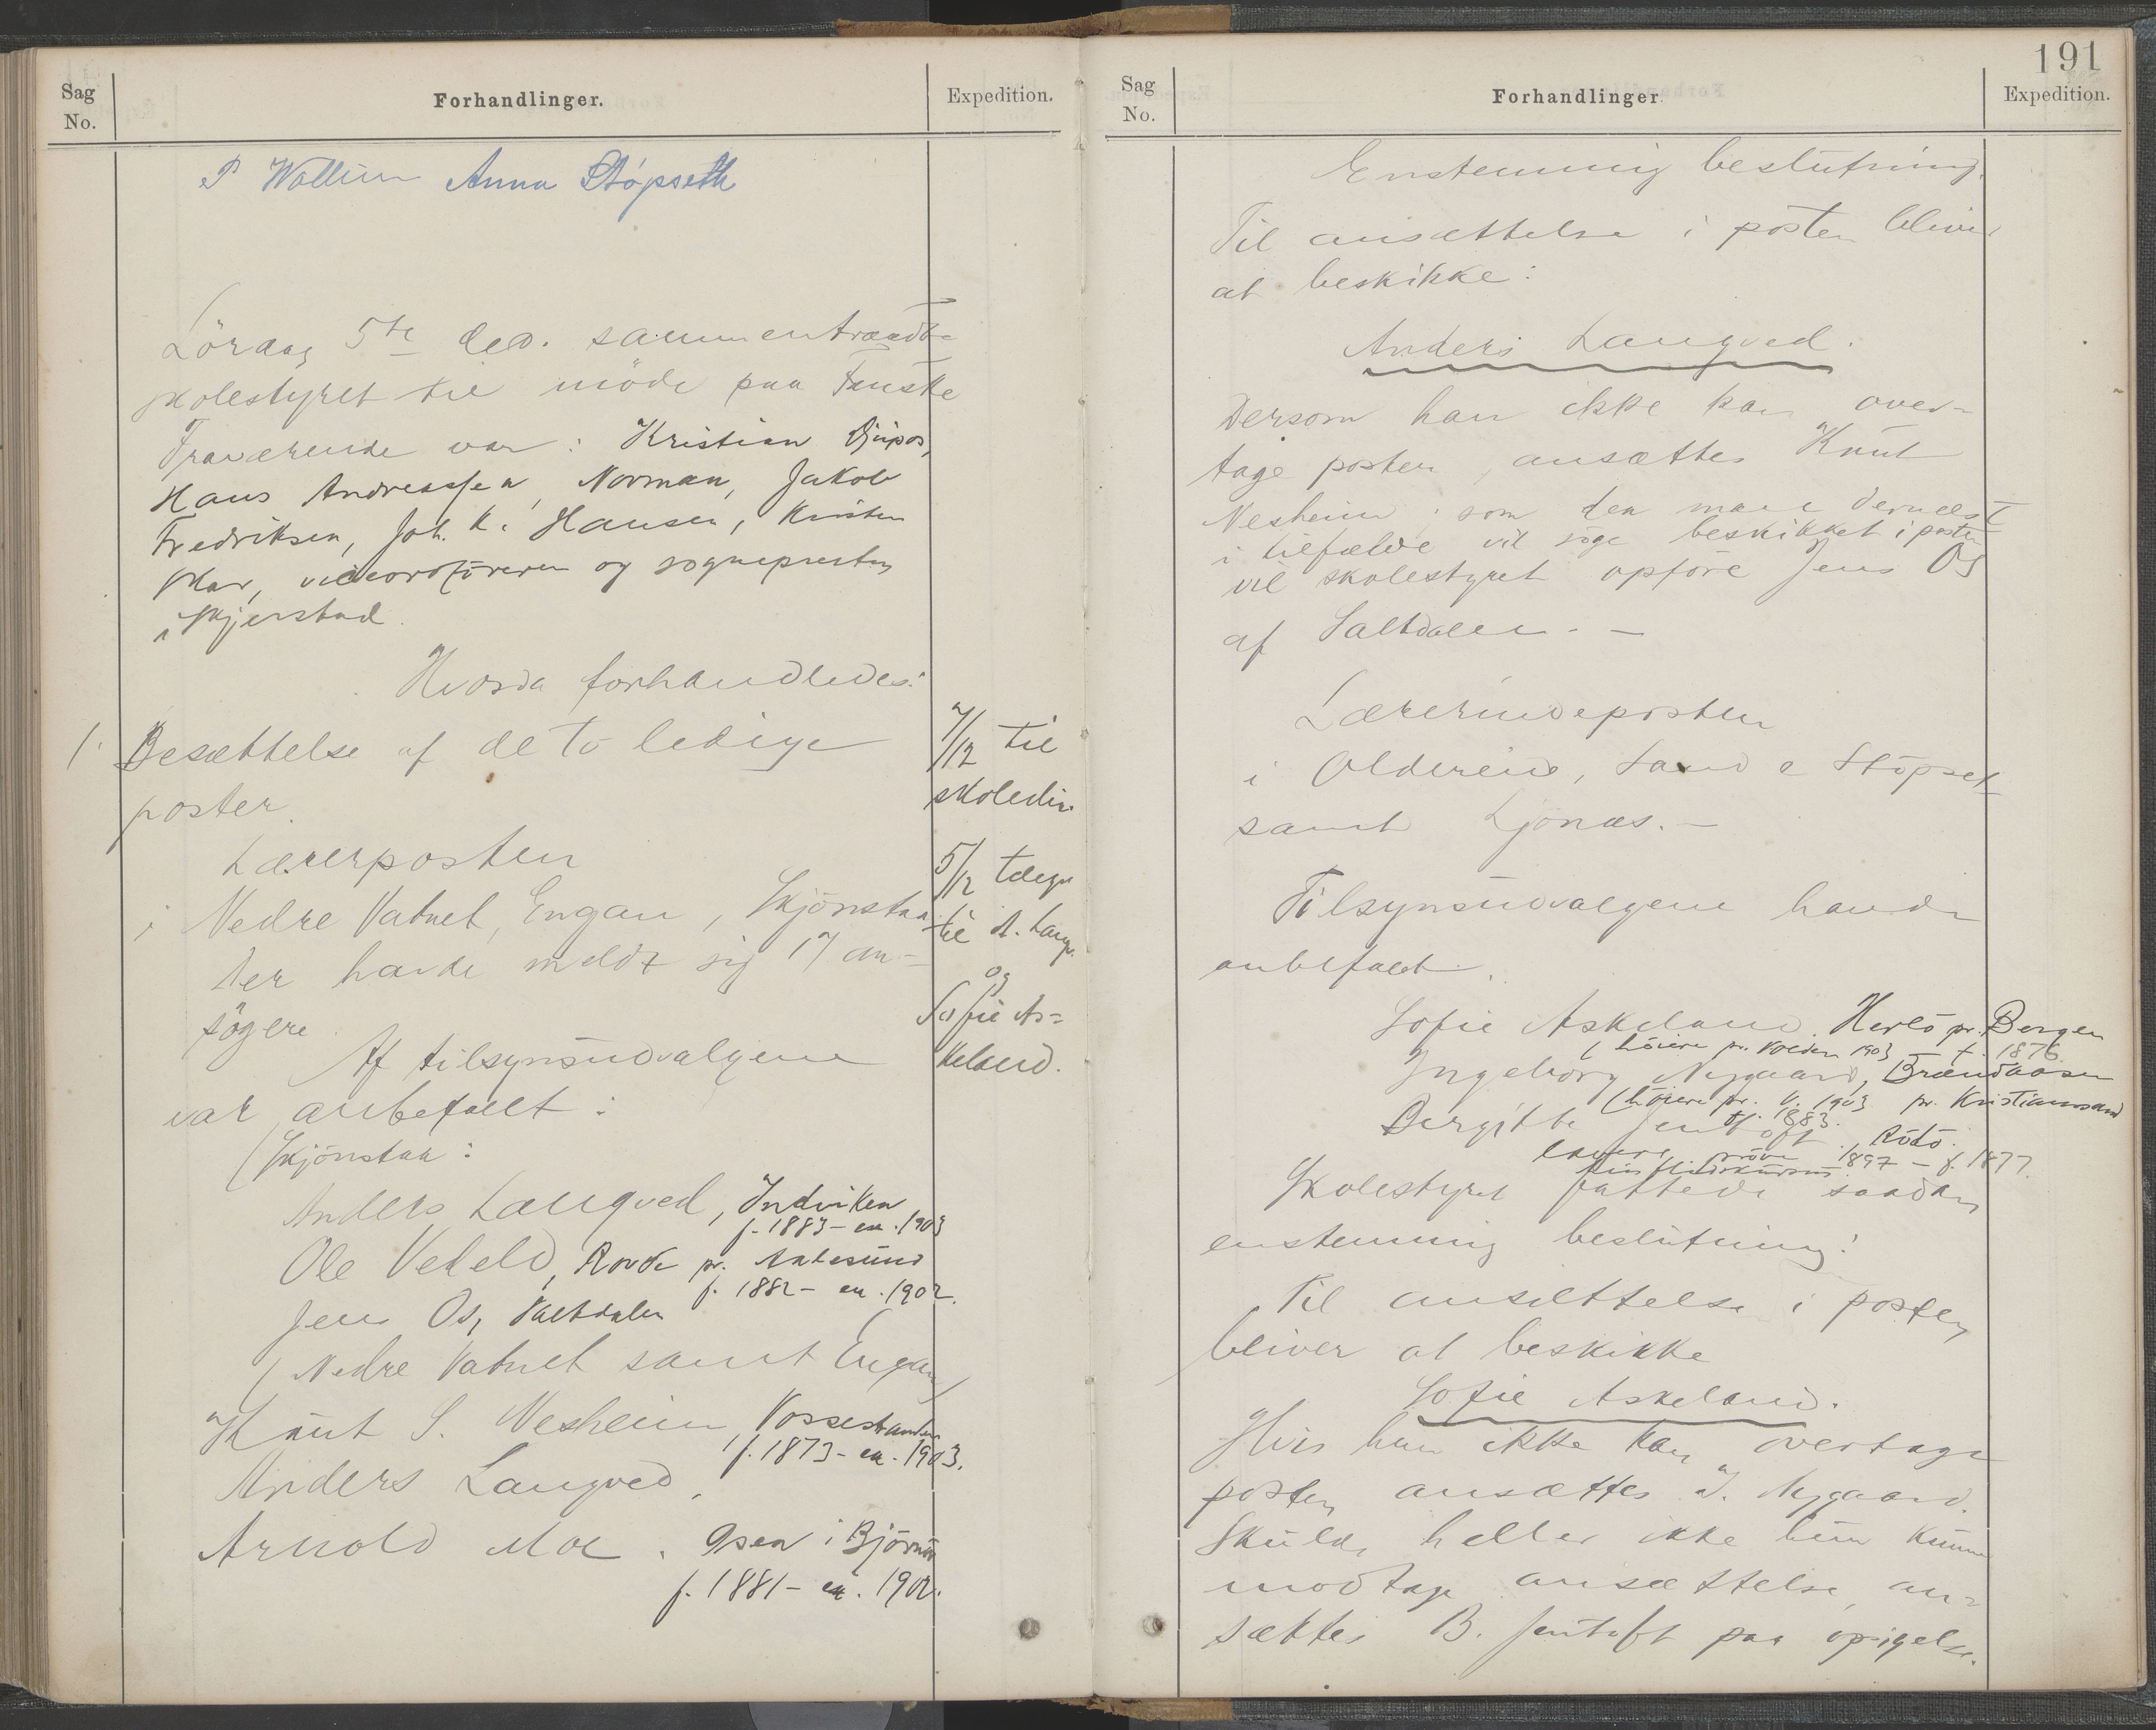 Sag
No.
Forhandlinger.
Expedition.
P Wollum Anna Støpseth
Lördag 5te des. sammentraadte
skolestyret til möde paa Fauske
Fraværende var: Kristian Djupos,
Hans Andreassen, Norman, Jakob
Fredriksen, Joh. K. Hansen, Kristen
Skar, viceordföreren og sognepresten
i Skjerstad.
Hvorda forhandledes:
1. Besættelse af de to ledige
poster.
Lærerposten
i Nedre Vatnet, Engan, Skjönstaa.
Der havde meldt sig 17 an-
sögere.
Af tilsynsudvalgene
var anbefalt:
(Skjönstaa:
Anders Langved, Indviken
f. 1883 - ex. 1903
Ole Vedeld, Rovde pr. Aalesund
f. 1882 - ex. 1902.
Jens Os, Saltdalen
(Nedre Vatnet samt Engan)
Knut S. Nesheim, Vossestranden
f. 1873 - ex. 1903.
Anders Langved.
Arnold Moe. Osen i Björnör
f. 1881 - ex. 1902.
7/12 til
skoledir.
5/12 telegr
til A. Langv.
og
Sofie As-
keland.
191
Sag
No.
Forhandlinger
Expedition.
Enstemmig beslutning.
Til ansættelse i posten bliver
at beskikke:
Anders Langved.
Dersom han ikke kan over-
tage posten, ansættes Knut
Nesheim; som den man dernæst
i tilfælde vil söge beskikket i posten
vil skolestyret opföre Jens Os
af Saltdalen. -
Lærerindeposten
i Aldereine, Sand & Stöpset
samt Ljönæs. -
Tilsynsudvalgene havde
anbefalet.
Sofie Askeland. Herlö pr. Bergen
(höiere pr. Volden 1903 - f. 1876.
Ingeborg Nygaard, Brændaasen
(höiere pr. V. 1903 pr. Kristianssand
f. 1883.
Bergitte Jentoft, Rödö.
lavere pröve 1897 - f. 1877.
Skolestyret fattede saadan
enstemmig beslutning:
Til ansættelse i posten
bliver at beskikke
Sofie Askeland.
Hvis hun ikke kan overtage
posten ansættes I. Nygaard.
Skulde heller ikke hun kunne
modtage ansættelse, an-
sættes B. Jentoft paa opsigelse.